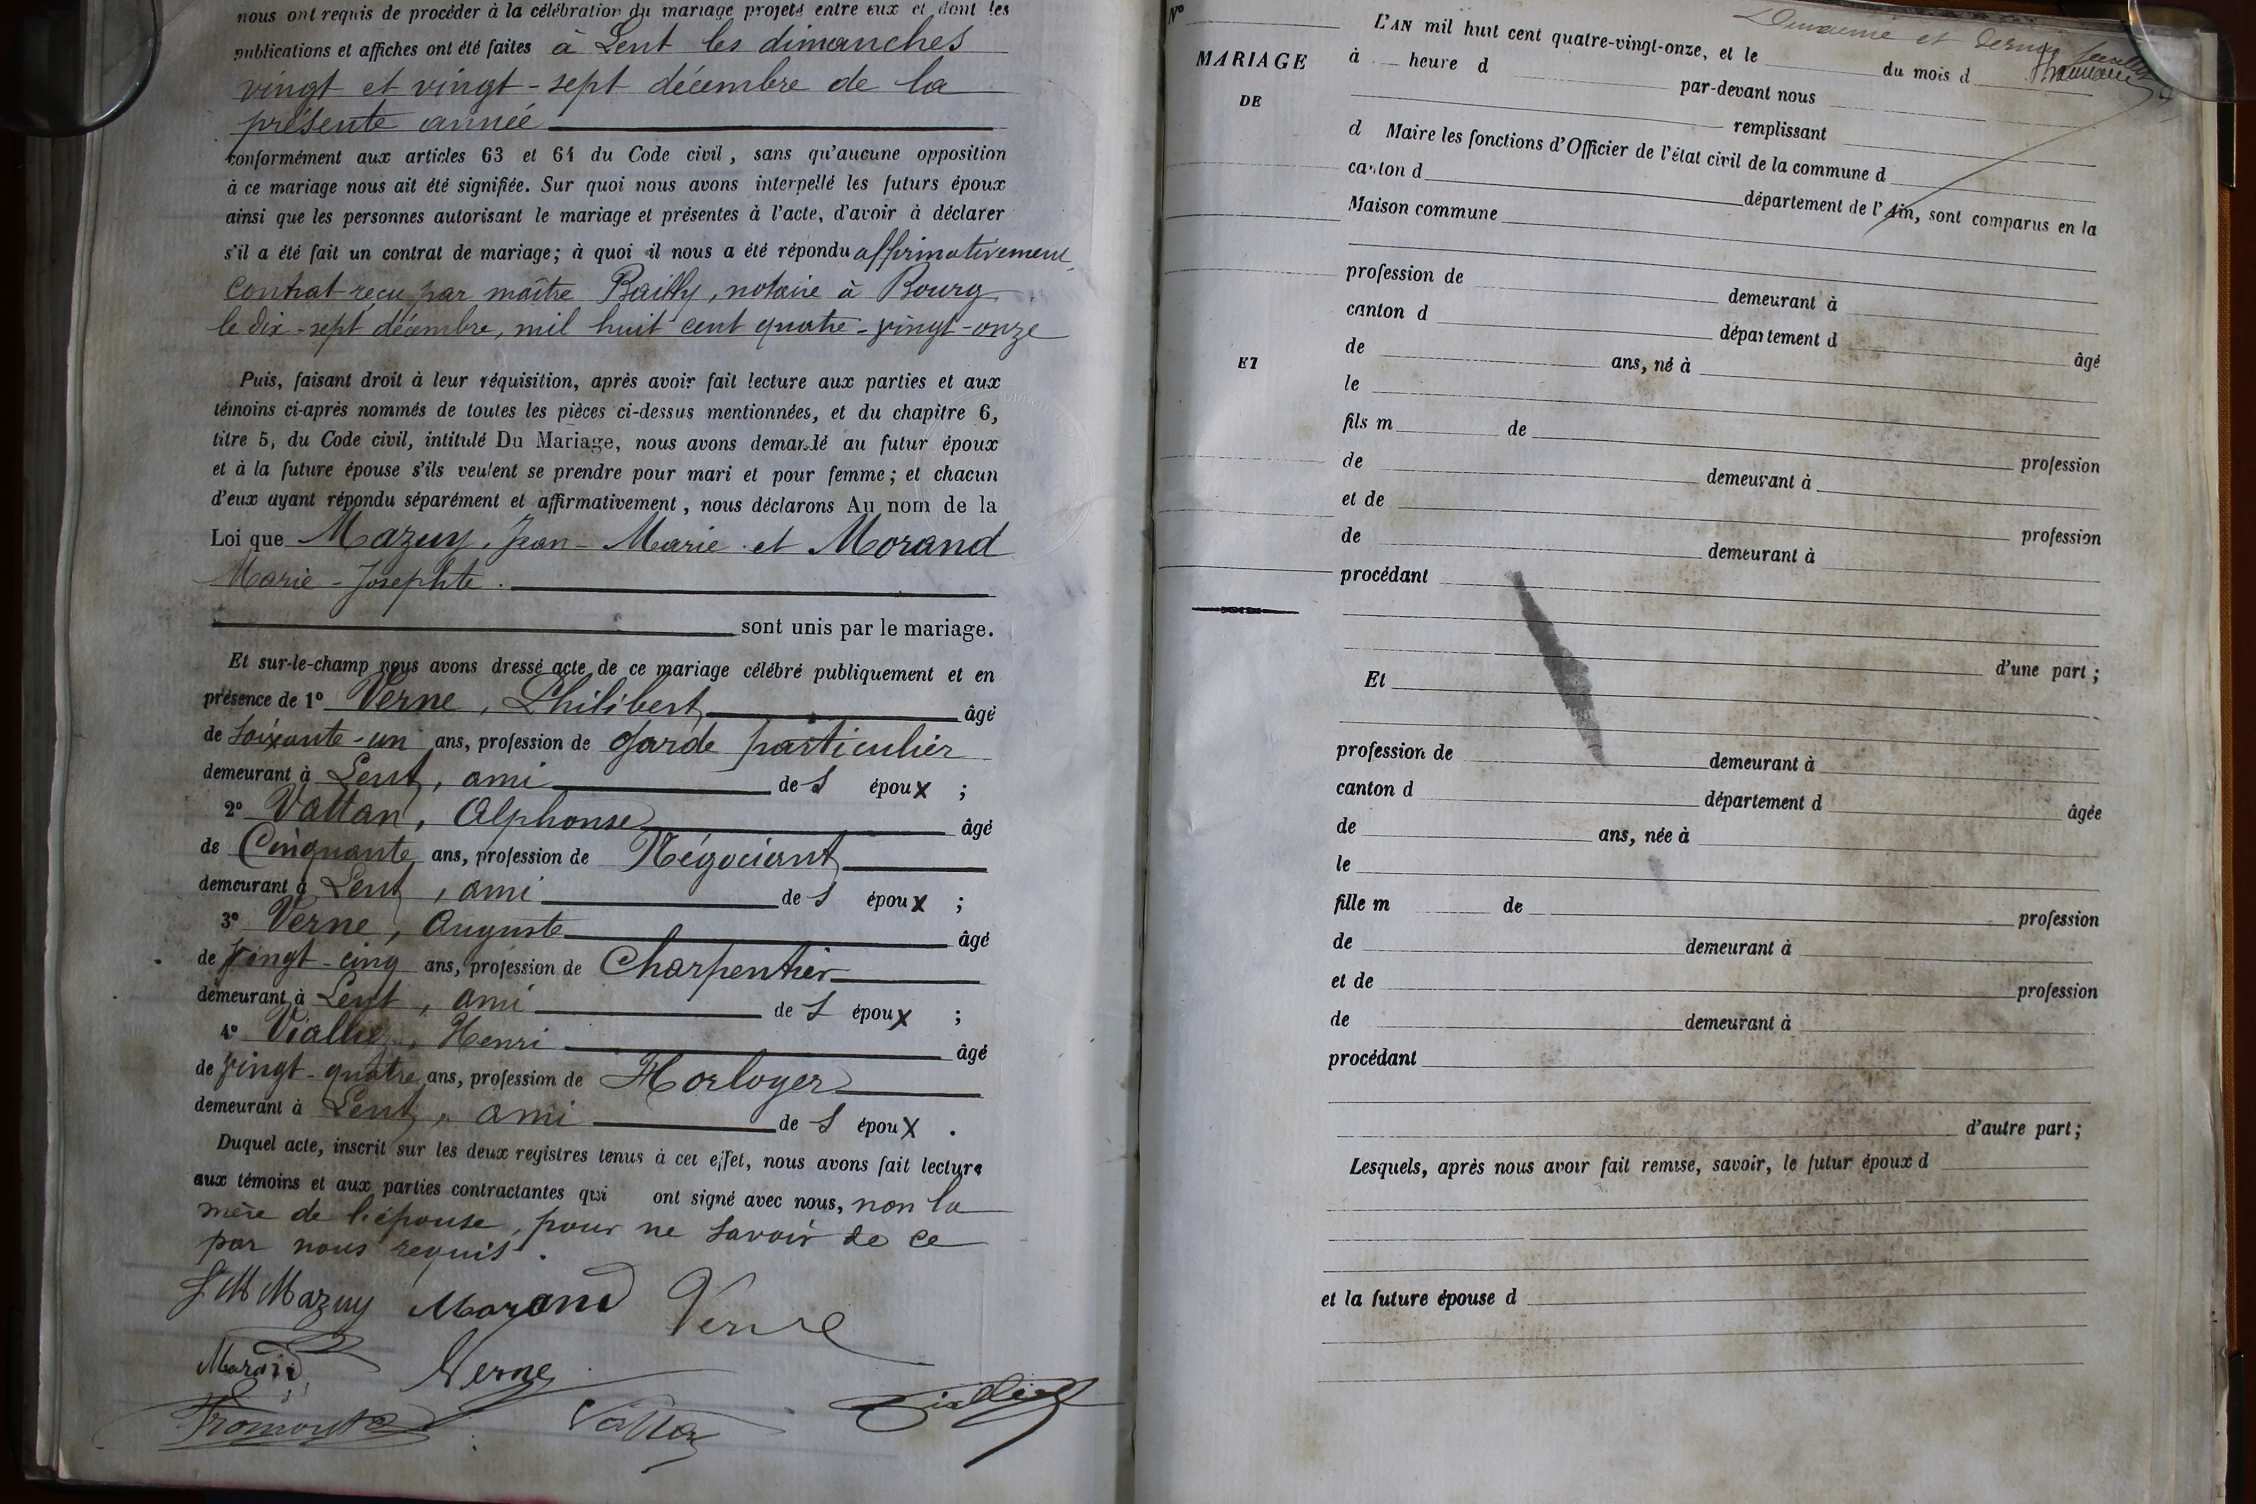 nous ont requis de procéder à la célébration du mariage projeté entre eux et dont les
publications et affiches ont été faites à Lent les dimanches
vingt et vingt-sept décembre de la
présente année
conformément aux articles 63 et 64 du Code civil, sans qu'aucune opposition
à ce mariage nous ait été signifiée. Sur quoi nous avons interpellé les futurs époux
ainsi que les personnes autorisant le mariage et présentes à l'acte, d'avoir à déclarer
s'il a été fait un contrat de mariage; à quoi il nous a été répondu affirmativement,
Contrat reçu par maître Bailly, notaire à Bourg
le dix-sept décembre, mil huit cent quatre-vingt-onze
Puis, faisant droit à leur réquisition, après avoir fait lecture aux parties et aux
témoins ci-après nommés de toutes les pièces ci-dessus mentionnées, et du chapitre 6,
titre 5, du Code civil, intitulé Du Mariage, nous avons demandé au futur époux
et à la future épouse s'ils veulent se prendre pour mari et pour femme; et chacun
d'eux ayant répondu séparément et affirmativement, nous déclarons Au nom de la
Loi que Mazuy, Jean-Marie et Morand
Marie-Josephte.
sont unis par le mariage.
Et sur-le-champ nous avons dressé acte de ce mariage célébré publiquement et en
présence de 1° Verne, Philibert âgé
de soixante-un ans, profession de garde particulier
demeurant à Lent, ami de s époux ;
2° Vattan, Alphonse âgé
de Cinquante ans, profession de Négociant
demeurant à Lent, ami de s époux ;
3° Verne, Auguste âgé
de vingt-cinq ans, profession de Charpentier
demeurant à Lent, ami de s époux ;
4° Viallie, Henri âgé
de vingt-quatre ans, profession de Horloger
demeurant à Lent, ami de s époux .
Duquel acte, inscrit sur les deux registres tenus à cet effet, nous avons fait lecture
aux témoins et aux parties contractantes qui ont signé avec nous, non la
mère de l'épouse, pour ne savoir de ce
par nous requis.
J M Mazuy Morand Verne
Morand Verne
Fromont Vattan
N°
MARIAGE
DE
ET
L'AN mil huit cent quatre-vingt-onze, et le du mois d
à heure d par-devant nous
remplissant
d Maire les fonctions d'Officier de l'état civil de la commune d
canton d département de l'Ain, sont comparus en la
Maison commune
profession de demeurant à
canton d département d âgé
de ans, né à
le
fils m de profession
de demeurant à
et de profession
de demeurant à
procédant
d'une part ;
Et
profession de demeurant à
canton d département d âgée
de ans, née à
le
fille m de profession
de demeurant à
et de profession
de demeurant à
procédant
d'autre part ;
Lesquels, après nous avoir fait remise, savoir, le futur époux d
et la future épouse d